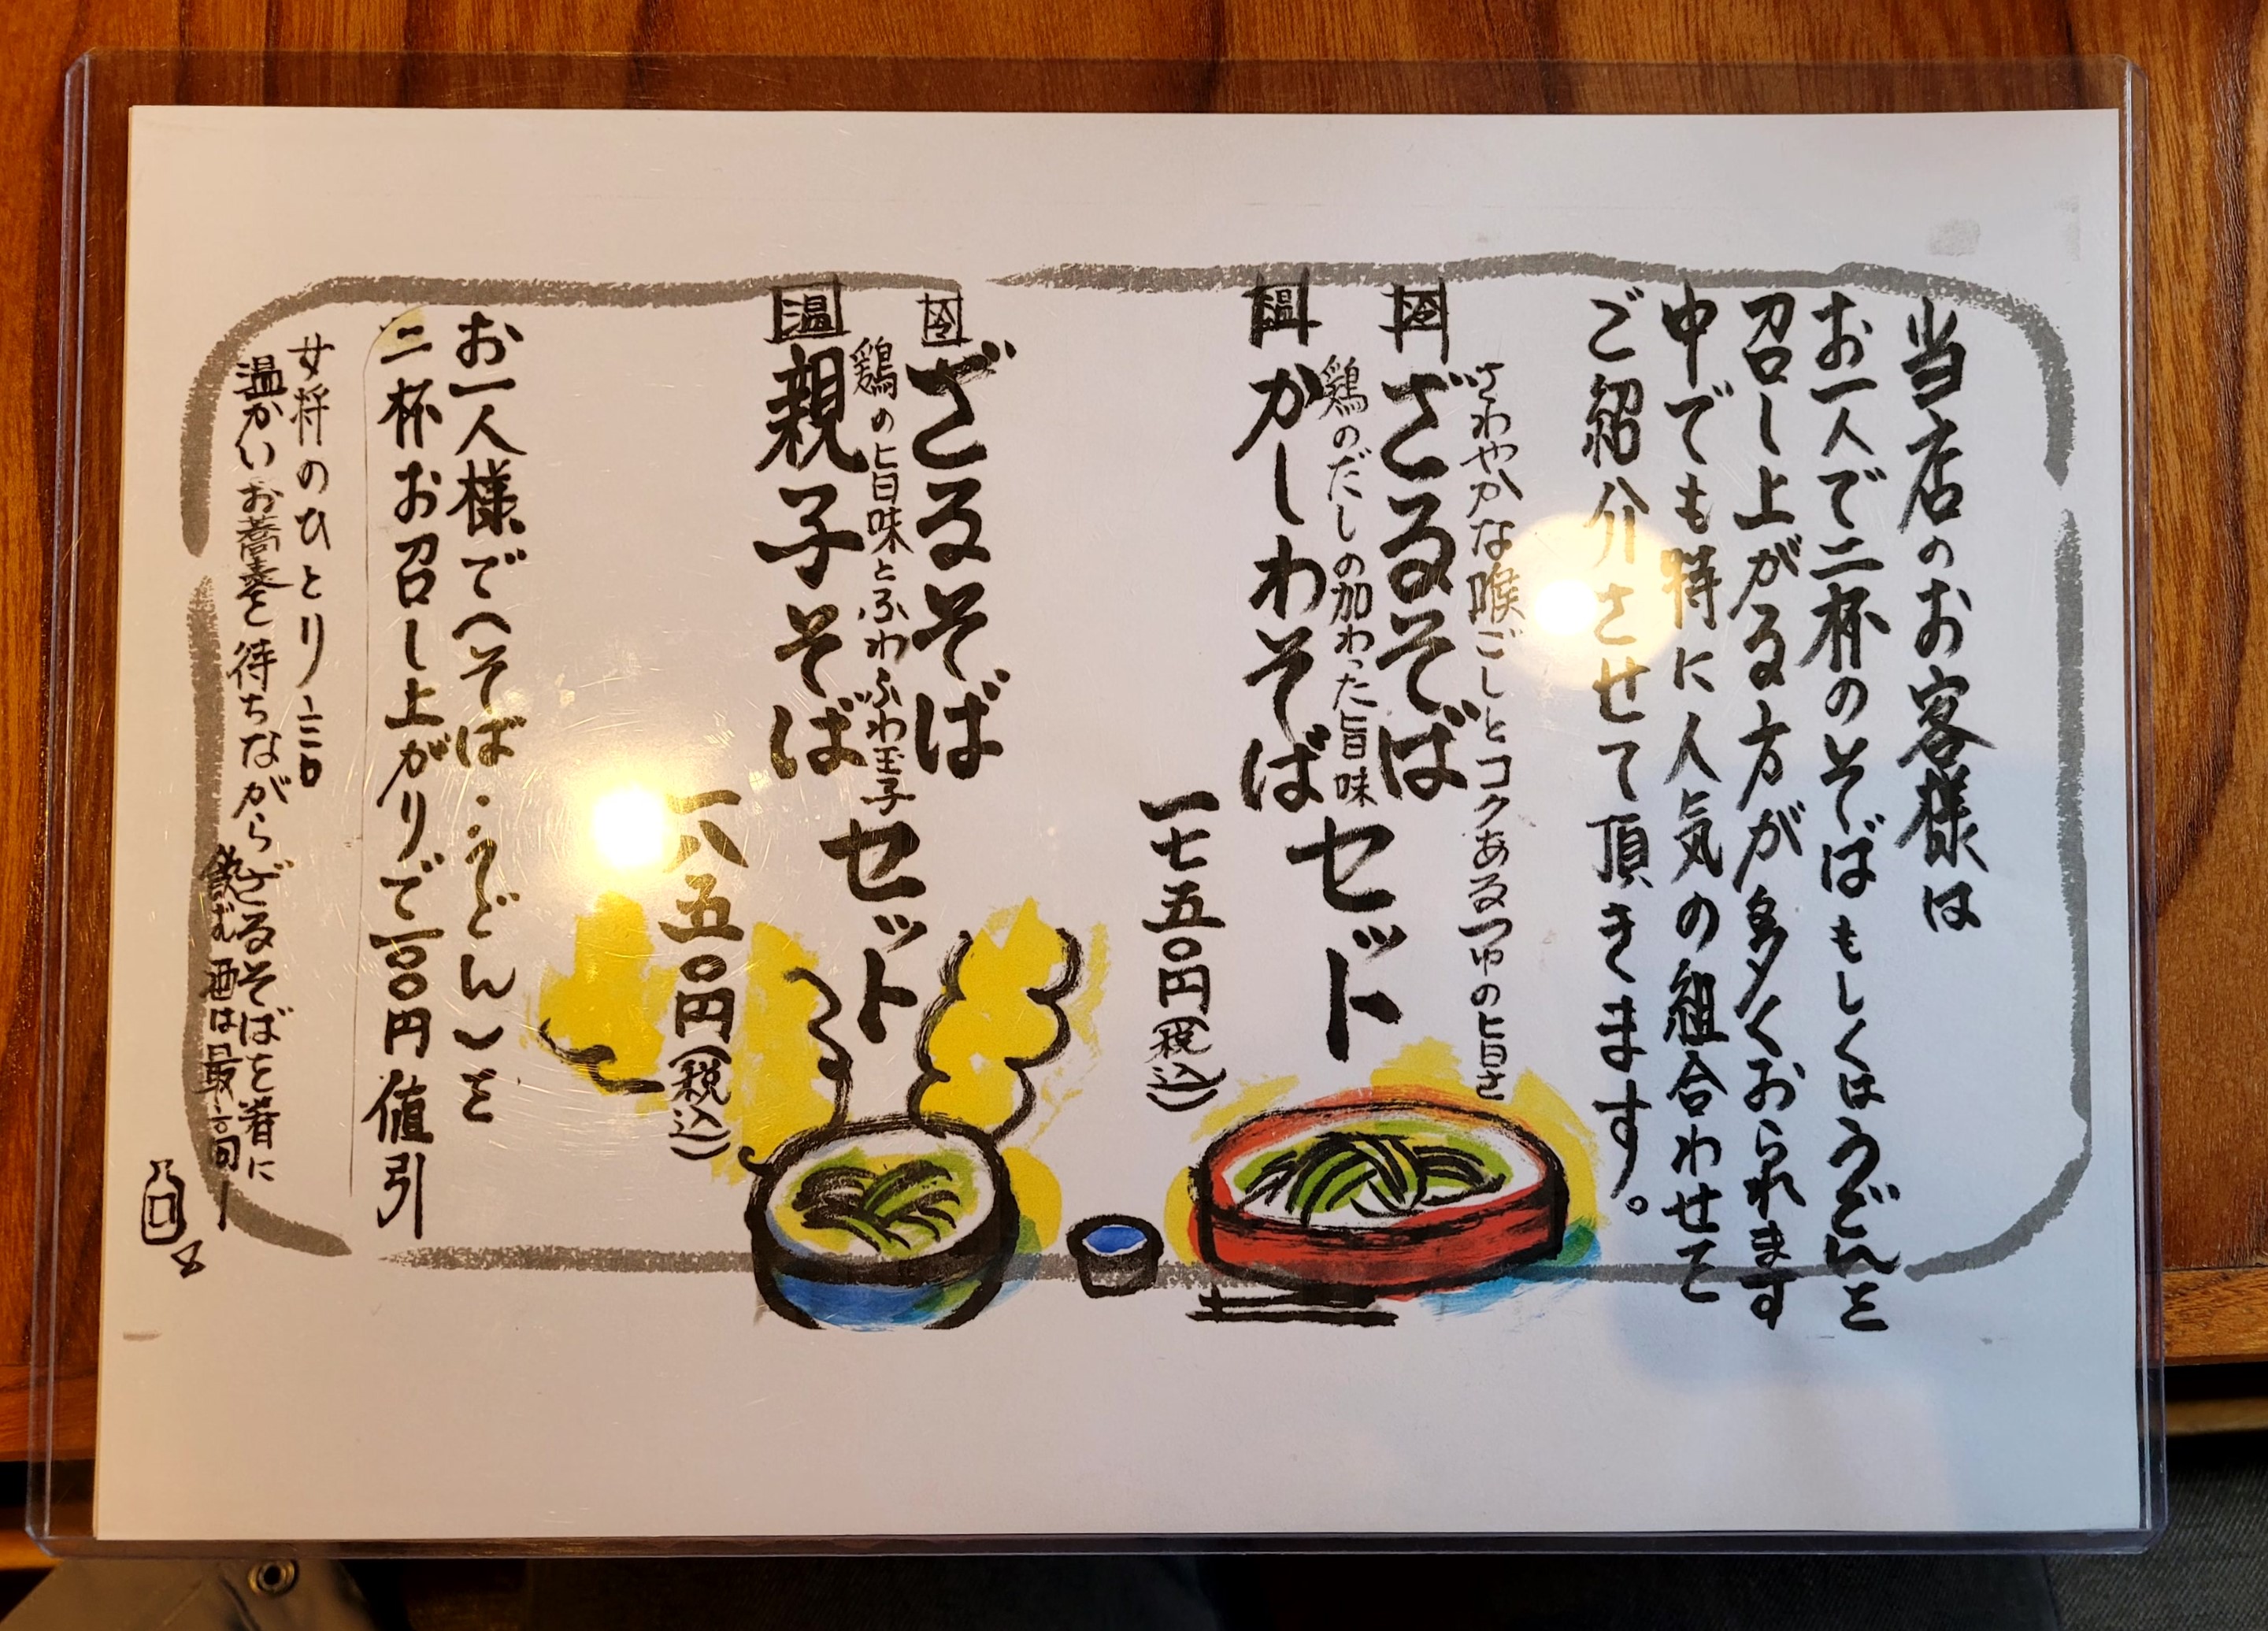 当店のお客様は
お一人で二杯のそばもしくはうどんを
召し上がる方が多くおられます
中でも特に人気の組合わせを
ご紹介させて頂きます。
さわやかな喉ごしとコクあるつゆの旨さ
冷 ざるそば
鶏のだしの加わった旨味
温 かしわそば
セット
一七五〇円(税込)
冷 ざるそば
鶏の旨味とふわふわ玉子
温 親子そば
セット
一八五〇円(税込)
お一人様で(そば・うどん)を
二杯お召し上がりで一〇〇円値引
女将のひとり言
温かいお蕎麦を待ちながらざるそばを肴に
飲む酒は最高ー